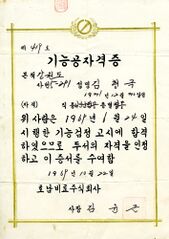 제 419 호
기능공자격증
본적 강원도
사번 5-291 성명 김정국
위 사람은 1969년 6월 24일
시행한 기능검정 고시에 합격
하였으므로 두서의 자격을 인정
하고 이 증서를 수여함
1969년 10월 22일
호남비료주식회사
사장 김